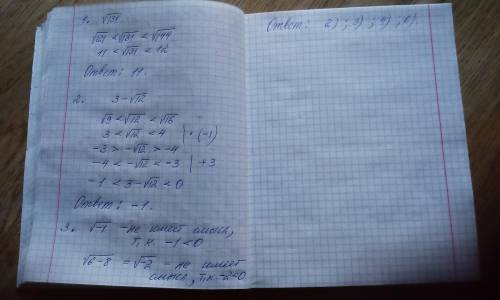 1. √131
√121 < √131 < √144
11 < √131 < 12
Ответ: 11.
2. 3-√12
√9 < √12 < √16
3 < √12 < 4 | · (-1)
-3 > -√12 > -4
-4 < -√12 < -3 | +3
-1 < 3-√12 < 0
Ответ: -1.
3. √-1 - не имеет смысл,
т.к. -1<0
√6-8 = √-2 - не имеет
смысл, т.к. -2<0
Ответ: 2); 3); 4); 6).